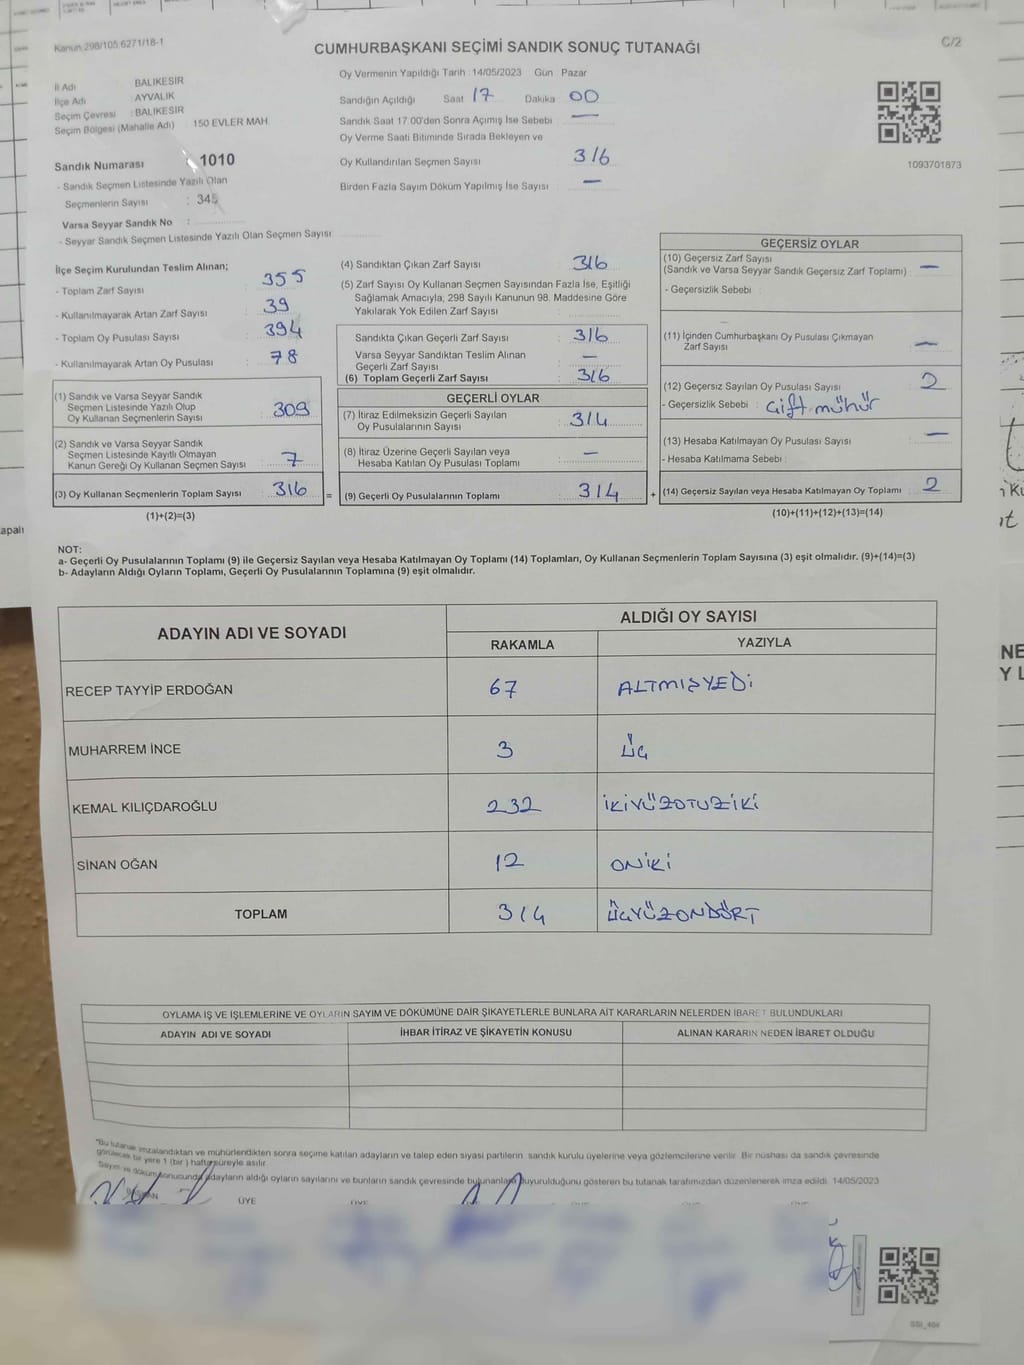 Kanun:298/105,6271/18-1
C/2
CUMHURBAŞKANI SEÇİMİ SANDIK SONUÇ TUTANAĞI
İl Adı : BALIKESİR
İlçe Adı : AYVALIK
Seçim Çevresi : BALIKESİR
Seçim Bölgesi (Mahalle Adı) : 150 EVLER MAH.
Sandık Numarası : 1010
- Sandık Seçmen Listesinde Yazılı Olan
Seçmenlerin Sayısı : 345
Varsa Seyyar Sandık No :
- Seyyar Sandık Seçmen Listesinde Yazılı Olan Seçmen Sayısı
Oy Vermenin Yapıldığı Tarih :14/05/2023 Gün Pazar
Sandığın Açıldığı Saat 17 Dakika 00
Sandık Saat 17:00'den Sonra Açımış İse Sebebi —
Oy Verme Saati Bitiminde Sırada Bekleyen ve
Oy Kullandırılan Seçmen Sayısı 316
Birden Fazla Sayım Döküm Yapılmış İse Sayısı —
1093701873
İlçe Seçim Kurulundan Teslim Alınan;
- Toplam Zarf Sayısı 355
- Kullanılmayarak Artan Zarf Sayısı 39
- Toplam Oy Pusulası Sayısı 394
- Kullanılmayarak Artan Oy Pusulası 78
(1) Sandık ve Varsa Seyyar Sandık
Seçmen Listesinde Yazılı Olup
Oy Kullanan Seçmenlerin Sayısı 309
(2) Sandık ve Varsa Seyyar Sandık
Seçmen Listesinde Kayıtlı Olmayan
Kanun Gereği Oy Kullanan Seçmen Sayısı 7
(3) Oy Kullanan Seçmenlerin Toplam Sayısı 316 =
(1)+(2)=(3)
(4) Sandıktan Çıkan Zarf Sayısı 316
(5) Zarf Sayısı Oy Kullanan Seçmen Sayısından Fazla İse, Eşitliği
Sağlamak Amacıyla; 298 Sayılı Kanunun 98. Maddesine Göre
Yakılarak Yok Edilen Zarf Sayısı
Sandıkta Çıkan Geçerli Zarf Sayısı 316
Varsa Seyyar Sandıktan Teslim Alınan
Geçerli Zarf Sayısı —
(6) Toplam Geçerli Zarf Sayısı 316
GEÇERLİ OYLAR
(7) İtiraz Edilmeksizin Geçerli Sayılan
Oy Pusulalarının Sayısı 314
(8) İtiraz Üzerine Geçerli Sayılan veya
Hesaba Katılan Oy Pusulası Toplamı —
(9) Geçerli Oy Pusulalarının Toplamı 314 +
GEÇERSİZ OYLAR
(10) Geçersiz Zarf Sayısı
(Sandık ve Varsa Seyyar Sandık Geçersiz Zarf Toplamı) —
- Geçersizlik Sebebi :
(11) İçinden Cumhurbaşkanı Oy Pusulası Çıkmayan
Zarf Sayısı —
(12) Geçersiz Sayılan Oy Pusulası Sayısı 2
- Geçersizlik Sebebi : Çift mühür
(13) Hesaba Katılmayan Oy Pusulası Sayısı —
- Hesaba Katılmama Sebebi :
(14) Geçersiz Sayılan veya Hesaba Katılmayan Oy Toplamı 2
(10)+(11)+(12)+(13)=(14)
NOT:
a- Geçerli Oy Pusulalarının Toplamı (9) ile Geçersiz Sayılan veya Hesaba Katılmayan Oy Toplamı (14) Toplamları, Oy Kullanan Seçmenlerin Toplam Sayısına (3) eşit olmalıdır. (9)+(14)=(3)
b- Adayların Aldığı Oyların Toplamı, Geçerli Oy Pusulalarının Toplamına (9) eşit olmalıdır.
ADAYIN ADI VE SOYADI
ALDIĞI OY SAYISI
RAKAMLA YAZIYLA
RECEP TAYYİP ERDOĞAN 67 ALTMIŞYEDİ
MUHARREM İNCE 3 ÜÇ
KEMAL KILIÇDAROĞLU 232 İKİYÜZOTUZİKİ
SİNAN OĞAN 12 ONİKİ
TOPLAM 314 ÜÇYÜZONDÖRT
OYLAMA İŞ VE İŞLEMLERİNE VE OYLARIN SAYIM VE DÖKÜMÜNE DAİR ŞİKAYETLERLE BUNLARA AİT KARARLARIN NELERDEN İBARET BULUNDUKLARI
ADAYIN ADI VE SOYADI İHBAR İTİRAZ VE ŞİKAYETİN KONUSU ALINAN KARARIN NEDEN İBARET OLDUĞU
*Bu tutanak imzalandıktan ve mühürlendikten sonra seçime katılan adayların ve talep eden siyasi partilerin sandık kurulu üyelerine veya gözlemcilerine verilir. Bir nüshası da sandık çevresinde
görülecek bir yere 1 (bir) hafta süreyle asılır.
Sayım ve döküm sonucunda adayların aldığı oyların sayılarını ve bunların sandık çevresinde bulunanlara duyurulduğunu gösteren bu tutanak tarafımızdan düzenlenerek imza edildi. 14/05/2023
BAŞKAN ÜYE